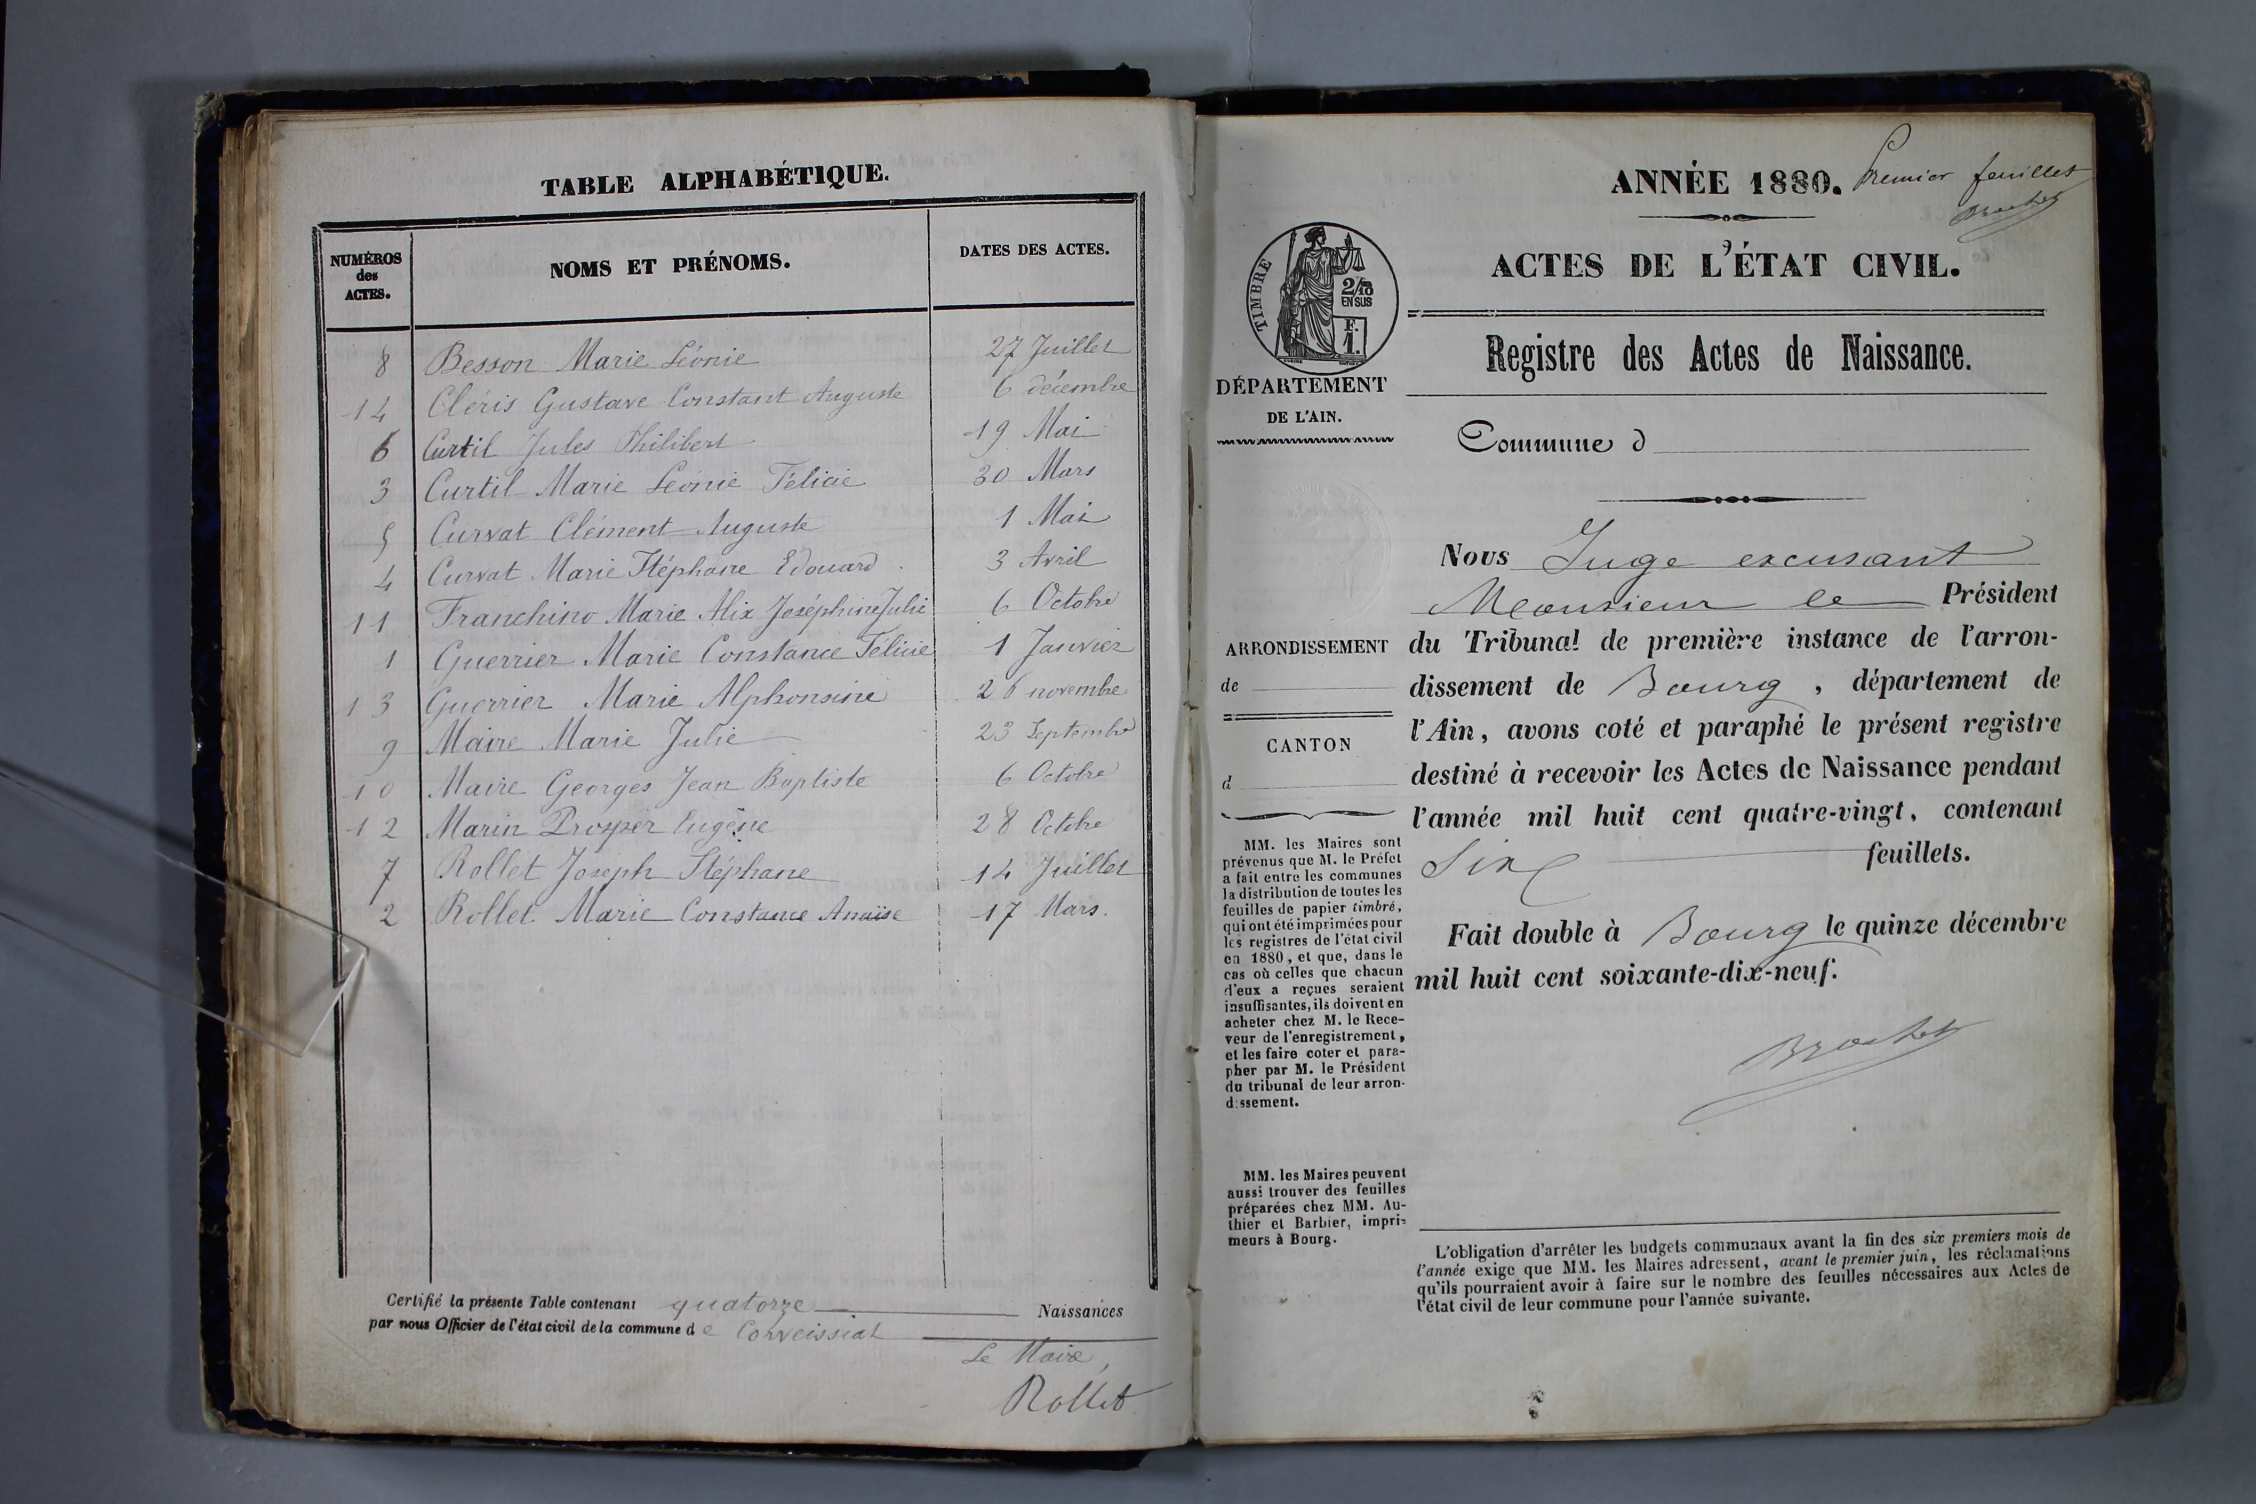 TABLE ALPHABÉTIQUE.
NUMÉROS
des
ACTES.
NOMS ET PRÉNOMS.
DATES DES ACTES.
8 Besson Marie Léonie 27 Juillet
14 Cléris Gustave Constant Auguste 6 décembre
6 Curtil Jules Philibert 19 Mai
3 Curtil Marie Léonie Félicie 30 Mars
5 Curvat Clément Auguste 1 Mai
4 Curvat Marie Stéphane Edouard 3 Avril
11 Franchino Marie Alix Joséphine Julie 6 Octobre
1 Guerrier Marie Constance Félicie 1 Janvier
13 Guerrier Marie Alphonsine 26 novembre
9 Maire Marie Julie 23 Septembre
10 Maire Georges Jean Baptiste 6 Octobre
12 Marin Prosper Eugène 28 Octobre
7 Rollet Joseph Stéphane 14 Juillet
2 Rollet Marie Constance Anaïse 17 Mars.
Certifié la présente Table contenant quatorze Naissances
par nous Officier de l'état civil de la commune de Corveissiat
Le Maire,
Rollet
Premier feuillet
ANNÉE 1880.
ACTES DE L'ÉTAT CIVIL.
Registre des Actes de Naissance.
TIMBRE
2/10
EN SUS
F.
1.
DÉPARTEMENT
DE L'AIN.
Commune d
ARRONDISSEMENT
de
CANTON
d
Nous Juge excusant
Monsieur le Président
du Tribunal de première instance de l'arron-
dissement de Bourg, département de
l'Ain, avons coté et paraphé le présent registre
destiné à recevoir les Actes de Naissance pendant
l'année mil huit cent quatre-vingt, contenant
Six feuillets.
Fait double à Bourg le quinze décembre
mil huit cent soixante-dix-neuf.
MM. les Maires sont
prévenus que M. le Préfet
a fait entre les communes
la distribution de toutes les
feuilles de papier timbré,
qui ont été imprimées pour
les registres de l'état civil
en 1880, et que, dans le
cas où celles que chacun
d'eux a reçues seraient
insuffisantes, ils doivent en
acheter chez M. le Rece-
veur de l'enregistrement,
et les faire coter et para-
pher par M. le Président
du tribunal de leur arron-
dissement.
MM. les Maires peuvent
aussi trouver des feuilles
préparées chez MM. Au-
thier et Barbier, impri-
meurs à Bourg.
L'obligation d'arrêter les budgets communaux avant la fin des six premiers mois de
l'année exige que MM. les Maires adressent, avant le premier juin, les réclamations
qu'ils pourraient avoir à faire sur le nombre des feuilles nécessaires aux Actes de
l'état civil de leur commune pour l'année suivante.